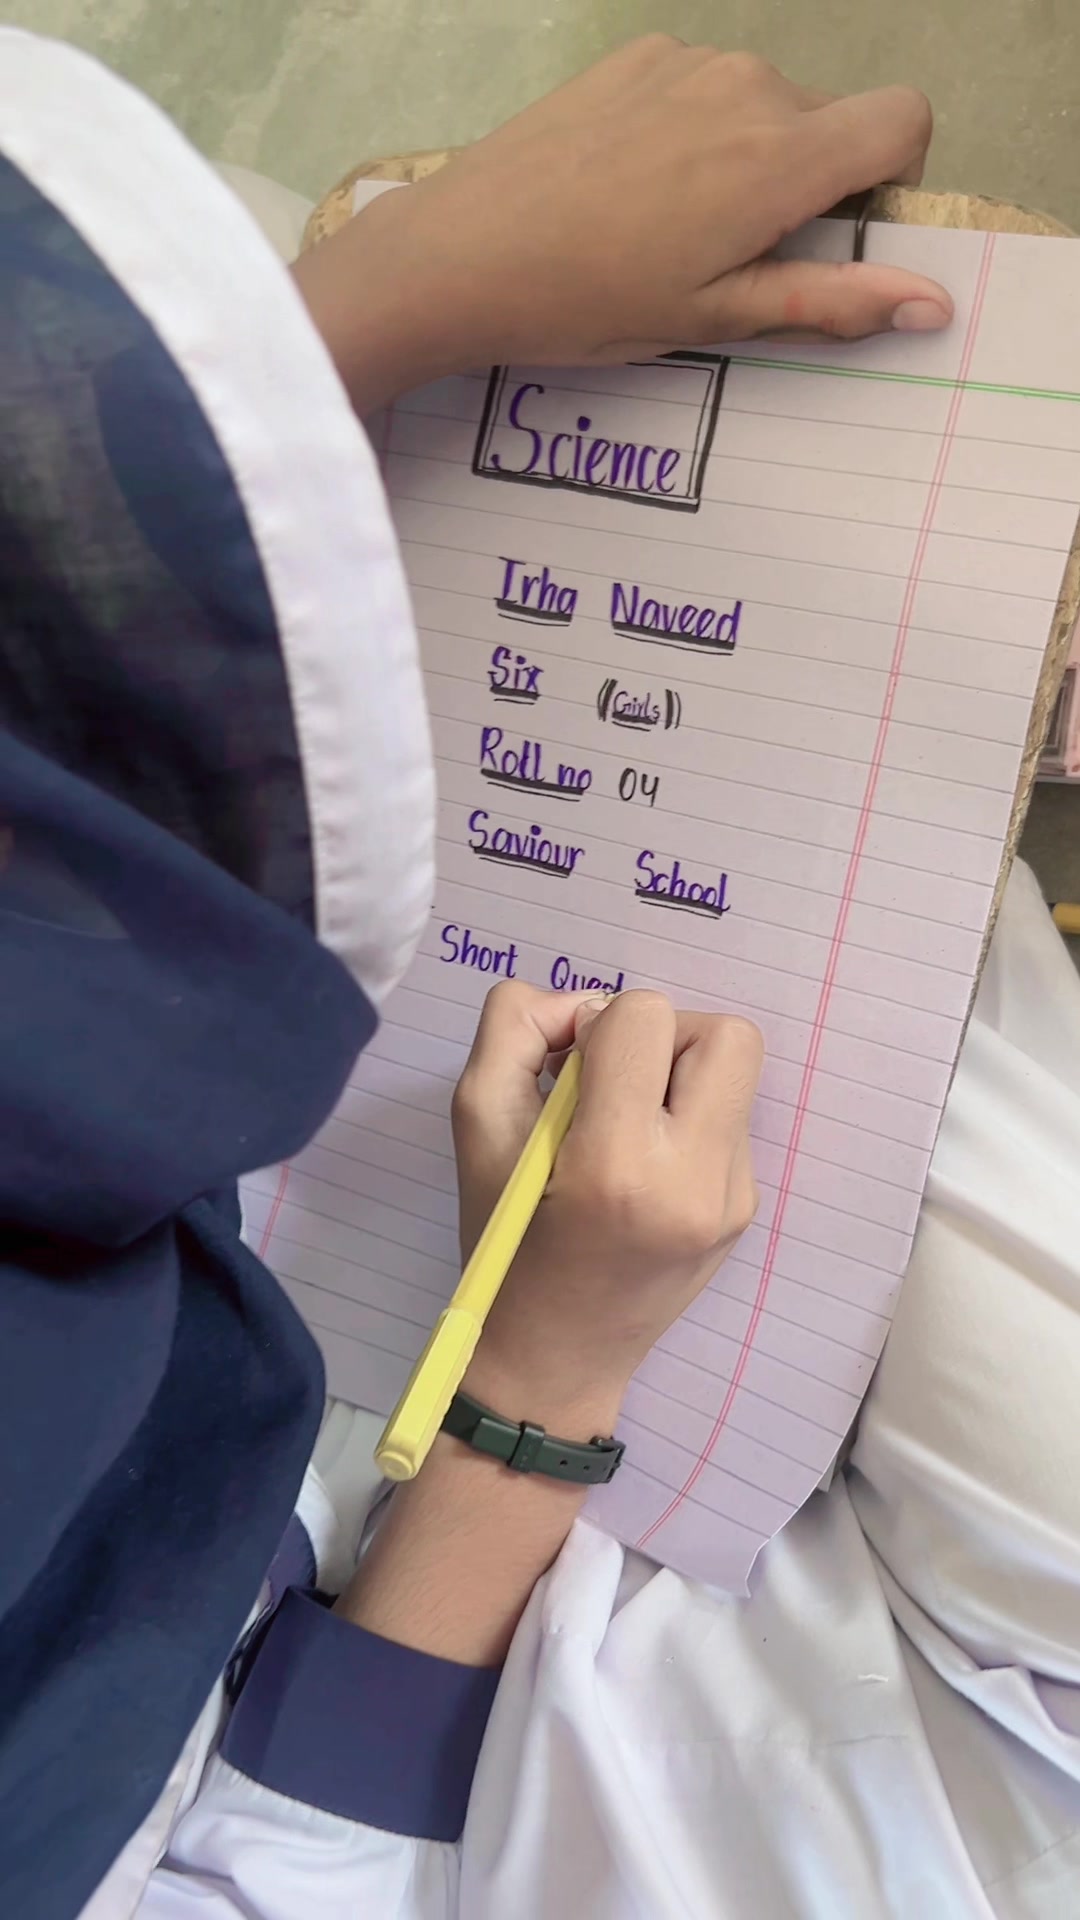 Science
Irha Naveed
Six ((Girls))
Roll no 04
Saviour School
Short